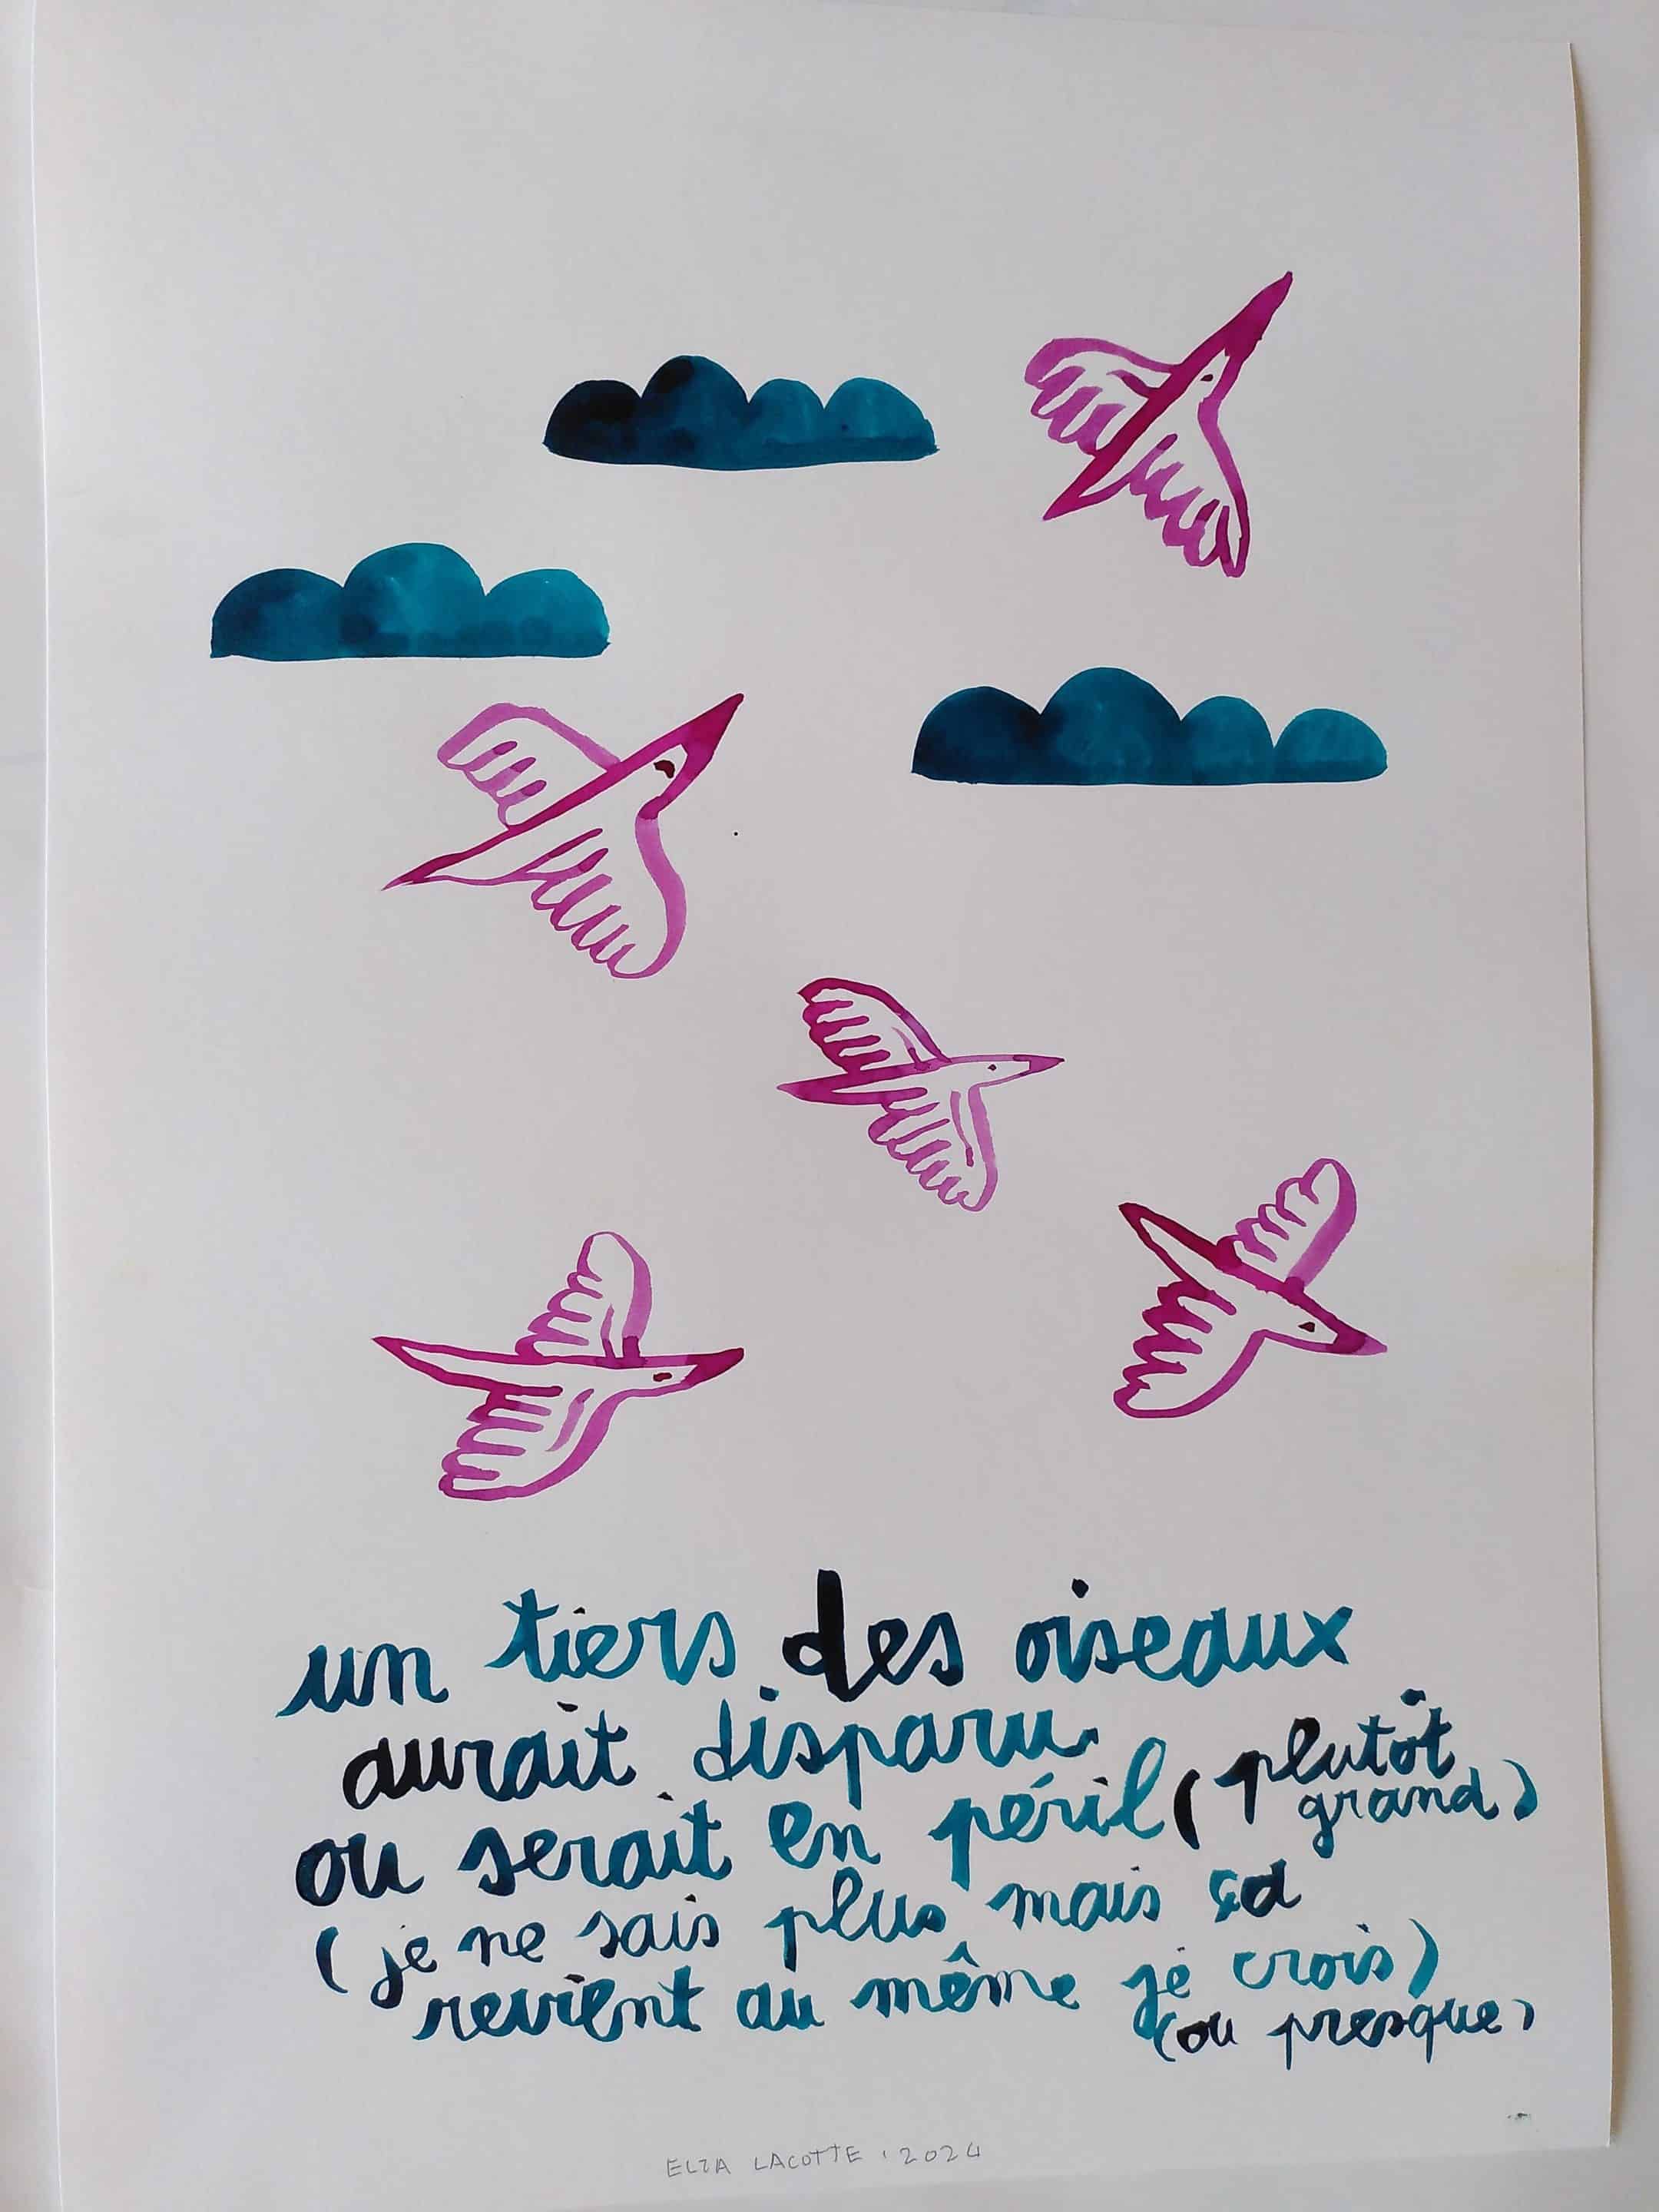 un tiers des oiseaux
aurait disparu
ou serait en péril (plutôt
grand)
(je ne sais plus mais ça
revient au même je crois)
(ou presque)
ELZA LACOTTE . 2024